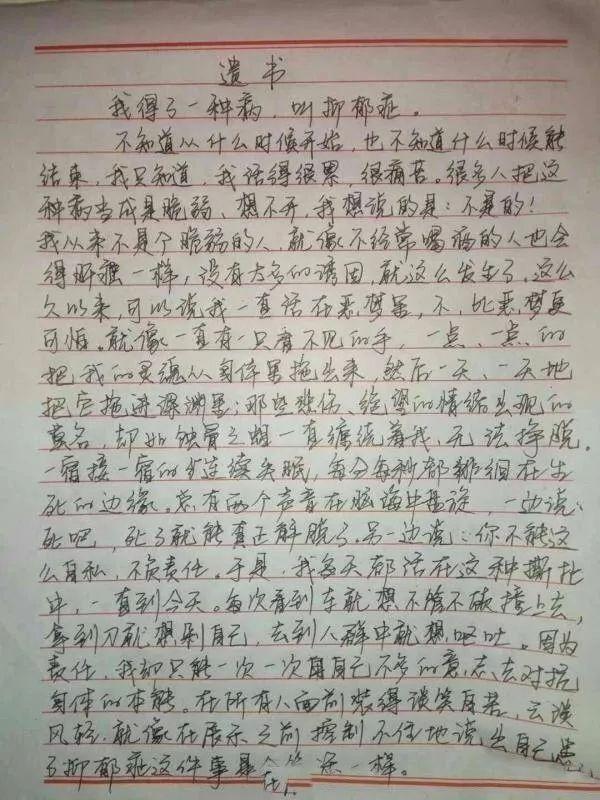 遗书
我得了一种病，叫抑郁症。
不知道从什么时候开始，也不知道什么时候能
结束，我只知道，我活得很累，很痛苦。很多人把这
种病当成是脆弱、想不开，我想说的是：不是的！
我从来不是个脆弱的人，就像不经常喝酒的人也会
得肝癌一样，没有太多的诱因，就这么发生了，这么
久以来，可以说我一直活在恶梦里，不，比恶梦更
可怕。就像一直有一只看不见的手，一点、一点的
把我的灵魂从身体里拖出来，然后一天、一天地
把它拖进深渊里；那些悲伤、绝望的情绪出现的
莫名，却如蚀骨之蛆一直缠绕着我，无法挣脱。
一宿接一宿的连续失眠，每分每秒都徘徊在生
死的边缘。总有两个声音在脑海中盘旋，一边说：
死吧，死了就能真正解脱了。另一边说：你不能这
么自私，不负责任。于是，我每天都活在这种撕扯
中，一直到今天。每次看到车就想不管不顾撞上去，
拿到刀就想剁自己，去到人群中就想呕吐。因为
责任，我却只能一次一次用自己不多的意志去对抗
身体的本能。在所有人面前装得谈笑自若，云淡
风轻，就像在展示之前控制不住地说出自己患
了抑郁症这件事是在 一样。